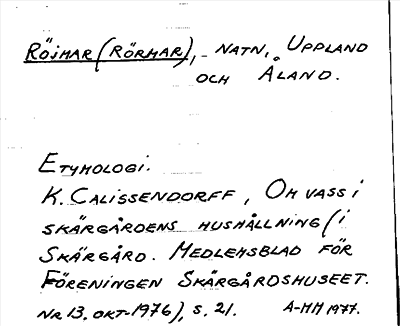 RÖJMAR (RÖRMAR), NATN, UPPLAND
OCH ÅLAND.
ETYMOLOGI.
K. CALISSENDORFF, OM VASS I
SKÄRGÅRDENS HUSHÅLLNING (I
SKÄRGÅRD. MEDLEMSBLAD FÖR
FÖRENINGEN SKÄRGÅRDSHUSEET.
NR 13. OKT-1976), S. 21. A-MH 1977.